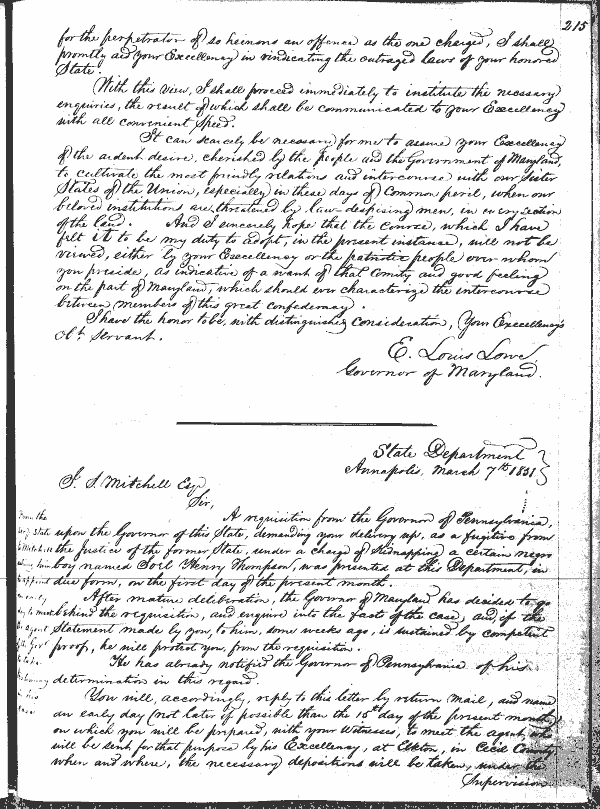 215
for the perpetrator of so heinous an offence as the one charged, I shall
promtly aid your Excellency in vindicating the outraged laws of your honored
State.
With this view, I shall proceed immediately to institute the necssary
enquiries, the result of which shall be communicated to your Excellency
with all convenient speed.
It can scarcely be necessary for me to assure your Excellency
of the ardent desire, cherished by the people and the Government of Maryland,
to cultivate the most friendly relations and intercourse with our Sister
States of the Union, especially in these days of Common peril, when our
beloved institutions are threatened by law-despising men, in every section
of the land. And I sincerely hope that the course, which I have
felt it to be my duty to adopt, in the present instance, will not be
viewed, either by your Excellency or the patriotic people over whom
you preside, as indicative of a want of that Comity and good feeling
on the part of Maryland, which should ever characterize the intercourse
between members of this great Confederacy.
I have the honor to be, with distinguished Consideration, Your Excellency's
Obt. Servant.
E. Louis Lowe,
Governor of Maryland.
State Department
Annapolis, March 7th 1851
Mitchell Esq.
Sir,
A requisition from the Governor of Pennsylvania,
upon the Governor of this State, demanding your delivery up, as a fugitive from
the Justice of the former State, under a charge of Kidnapping a certain negro
boy named Henry Thompson, was presented at this Department, in
due form, on the first day of the present month.
After mature deliberation, the Governor of Maryland has decided to go
behind the requisition, and enquire into the facts of the case, and if the
Statement made by you, to him, some weeks ago, is sustained by competent
proof, he will protect you, from the requisition.
He has already notified the Governor of Pennsylvania of his
determination in this regard.
You will, accordingly, reply to this letter by return Mail, and name
an early day (not later if possible than the 15th day of the present month)
on which you will be prepared, with your Witnesses, to meet the agent, who
will be sent for that purpose by his Excellency, at Elkton, in Cecil County
when and where, the necessary depositions will be taken, under the
Supervision